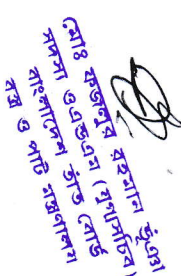 মোঃ ফজলুর রহমান ভূঁঞা
সদস্য ও এফএন (যুগ্মসচিব)
বাংলাদেশ তাঁত বোর্ড
বস্ত্র ও পাট মন্ত্রণালয়